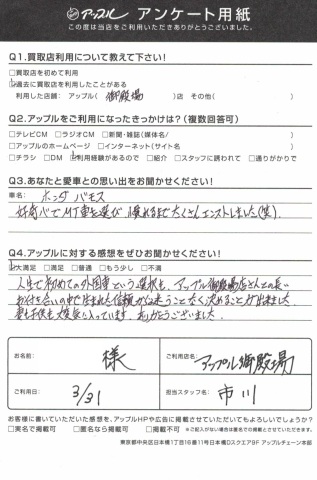 アップル アンケート用紙
この度は当店をご利用いただきありがとうございました。
Q1.買取店利用について教えて下さい!
□買取店を初めて利用
□過去に買取店を利用したことがある
利用した店舗: アップル( 御殿場 )店 その他( )
Q2.アップルをご利用になったきっかけは?(複数回答可)
□テレビCM □ラジオCM □新聞・雑誌(媒体名/ )
□アップルのホームページ □インターネット(サイト名 )
□チラシ □DM □利用経験があるので □紹介 □スタッフに誘われて □通りがかりで
Q3.あなたと愛車との思い出をお聞かせください!
車名: ホンダ バモス
好奇心でMT車を選び 慣れるまでたくさんエンストしました(笑)
Q4.アップルに対する感想をぜひお聞かせください!
□大満足 □満足 □普通 □もう少し □不満
人生で初めての外国車という選択も、アップル御殿場店さんとの長い
お付き合いの中で生まれた信頼から迷うことなく決めることが出来ました。
妻も子供も大変気に入っています。ありがとうございました。
お名前: 様
ご利用店名: アップル御殿場
ご利用日: 3/31
担当スタッフ名: 市川
お客様に書いていただいた感想を、アップルHPや広告に掲載させていただいてもよろしいでしょうか?
□実名で掲載可 □匿名なら掲載可 □掲載不可 ※ご記入がない場合は匿名での掲載とさせていただきます。
東京都中央区日本橋1丁目16番11号日本橋Dスクエア8F アップルチェーン本部